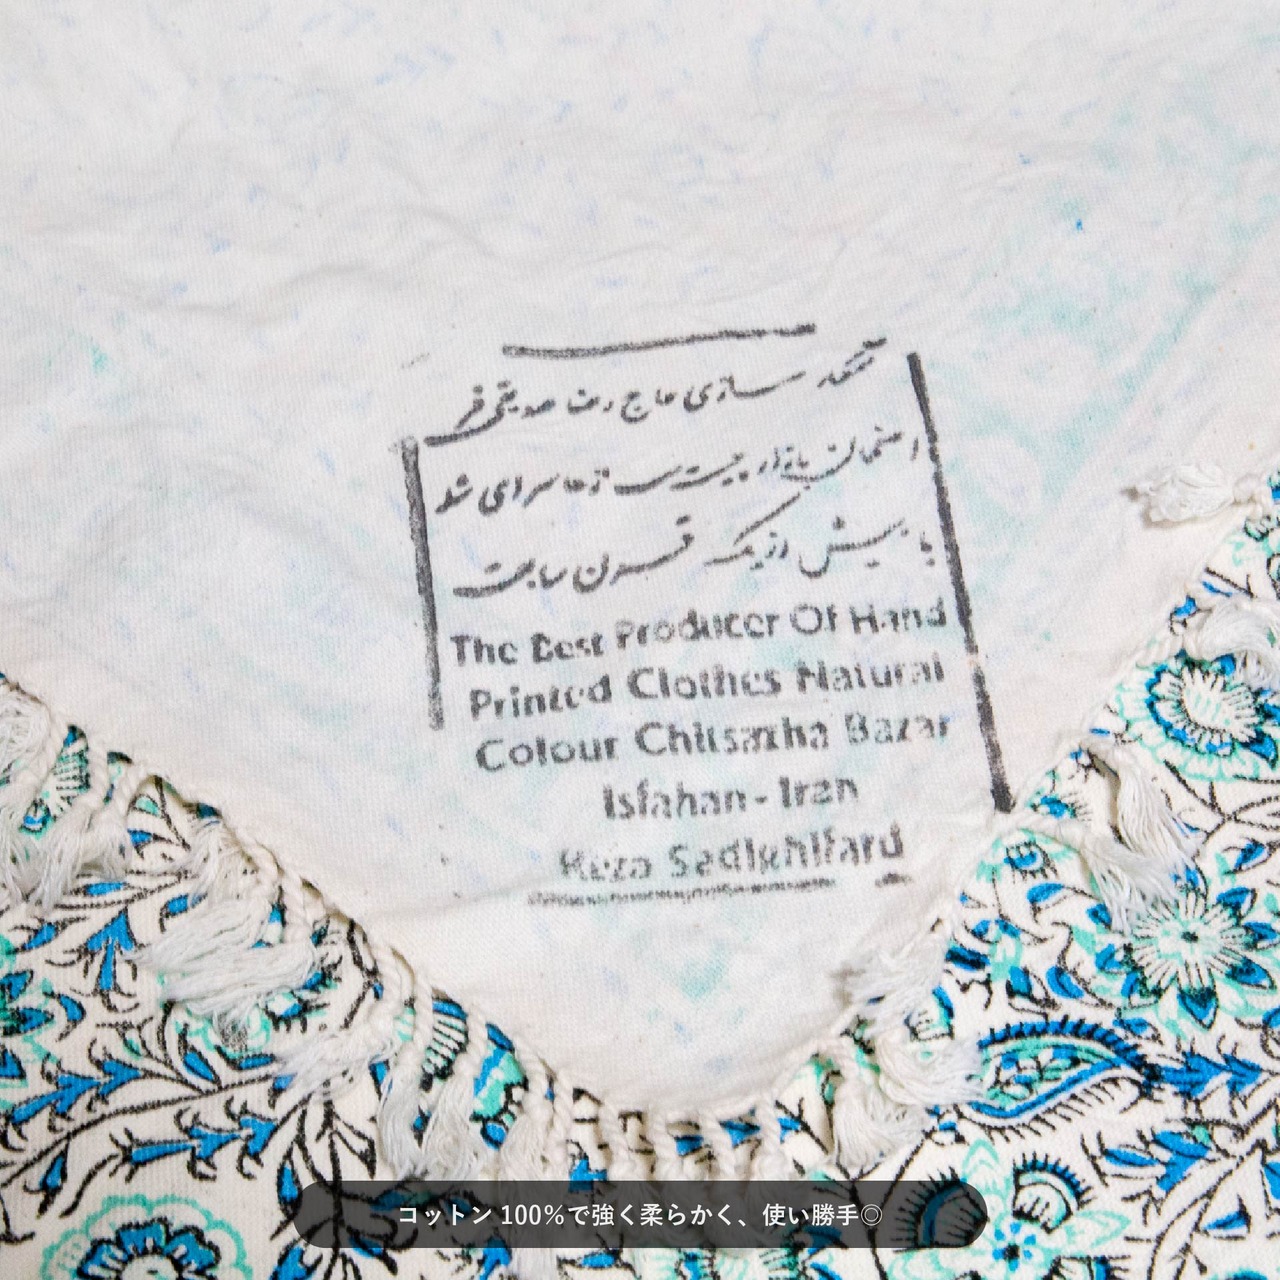 سازی حاج رضا صدیقی فر
اصفهان بازار چیت سازها سرای شو
با بیش از یک قرن سابقت
The Best Producer Of Hand
Printed Clothes Natural
Colour Chitsazha Bazar
Isfahan - Iran
Reza Sadighifard
コットン 100%で強く柔らかく、使い勝手◎